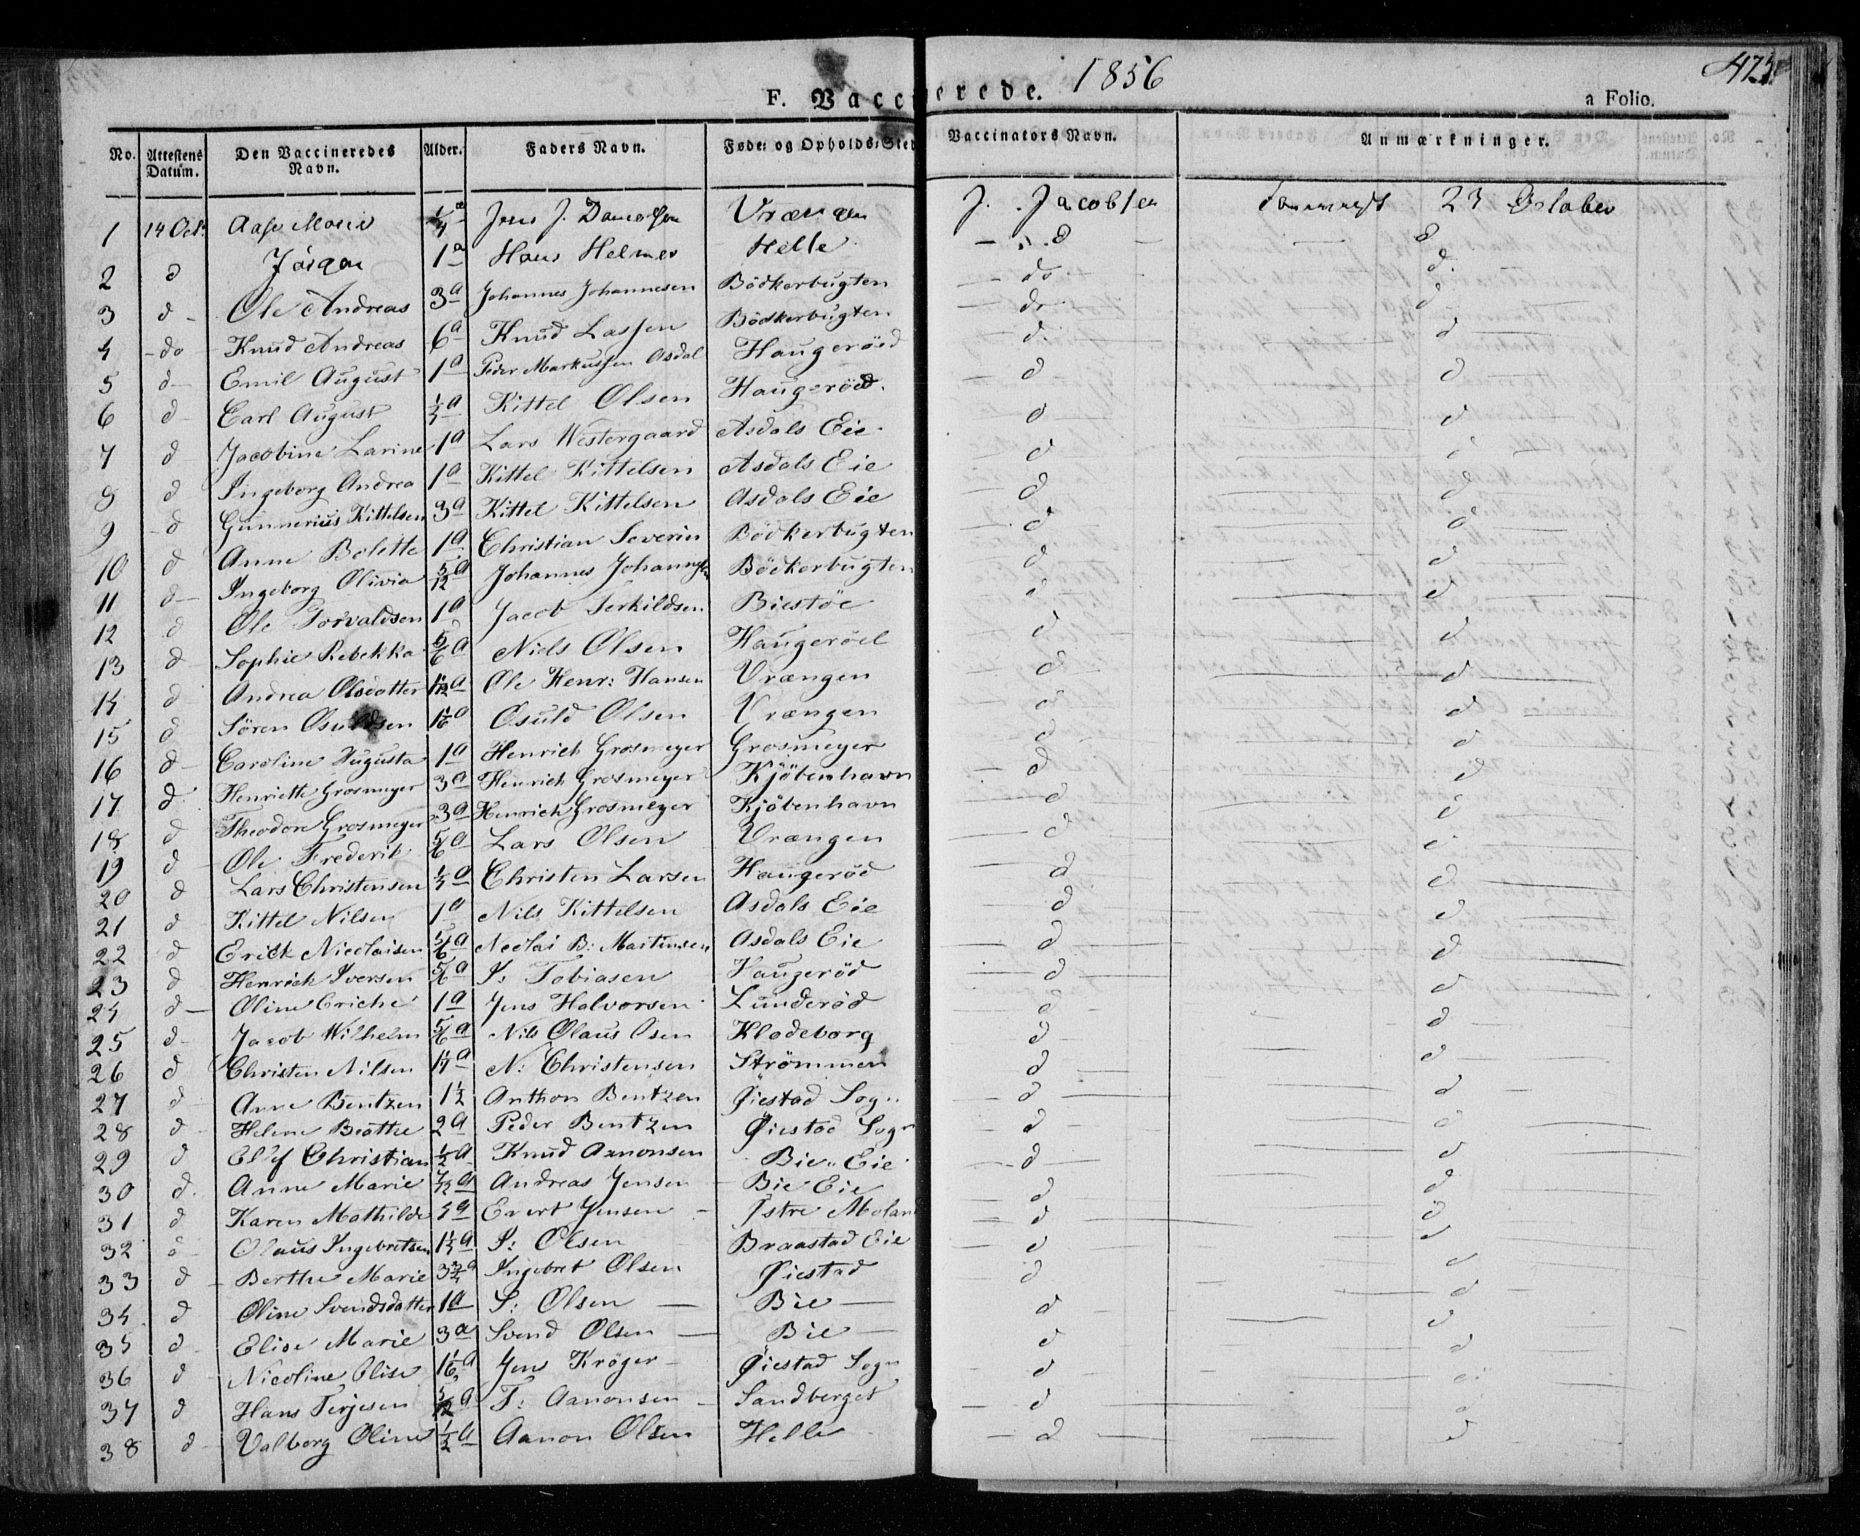 1856
F. Vaccinerede.
a Folio.
No. Attestens Datum. Den Vaccineredes Navn. Alder. Faders Navn. Føde= og Opholds=Sted Vaccinators Navn. Anmærkninger.
1 14 Oct. Aase Marie Jens J. Vrængen J. Jacobsen 23 October
2 d Jörgen 1a Hans Helmer Helle d d
3 d Ole Andreas 3a Johannes Johannesen Bödkerbugten do d.
4 do Knud Andreas 6a Knud Lassen Bödkerbugten do d
5 d Emil August 1a Peder Markussen Asdal Haugeröed d. d
6 d Carl August Kittel Olsen Haugeröed. d d
7 d Jacobine Larine 1a Lars Westergaard Asdals Eie d d
8 d Ingeborg Andrea 1a Kittel Kittelsen Asdals Eie d d
9 d Gunnerius Kittelsen 3a Kittel Kittelsen Asdals Eie d d
10 d Anne Bolette 1a Christian Severin Bödkerbugten d d
11 d Ingeborg Olivia 5/12 a Johannes Johannesen Bödkerbugten d d
12 d Ole Torvaldsen 1a Jacob Terkildsen Biestöe d d
13 d Sophie Rebekka 5/6 a Niels Olsen Haugeröed d d
14 d Andrea Olsdatter Ole Henr: Hansen Vrængen d d
15 d Sören Osuldsen 1 1/6 a Osuld Olsen Vrængen d d
16 d Caroline Augusta 1a Henrich Grosmeyer Grosmeyer d d
17 d Henriette Grosmeyer 3a Henrich Grosmeyer Kjöbenhavn d d
18 d Theodore Grosmeyer 3a Henrich Grosmeyer Kjöbenhavn d d
19 d Ole Frederik 5/6 a Lars Olsen Vrængen d d
20 d Lars Christensen Christen Larsen Haugeröd d d
21 d Kittel Nilsen 1a Nils Kittelsen Asdals Eie d d
22 d Erick Nicolaisen 5/6 a Nicolai B: Martinsen Asdals Eie d d
23 d Henrich Iversen 5/6 a I: Tobiasen Haugeröd d d
24 d Oline 1a Jens Halvorsen Lunderöd d d
25 d Jacob Wilhelm 5/6 a Nils Olaus Olsen Klodeborg d d
26 d Christen Nilsen N: Christensen Strömmen d d
27 d Anne Bentzen 1 1/2 Anthon Bentzen Øiestad Sogn d d
28 d Helene Beathe 2a Peder Bentzen Øiestad Sogn d d
29 d Christian 1/2 a Knud Aanonsen Bie Eie d d
30 d Anne Marie 7/12 a Andreas Jensen Bie Eie d d
31 d Karen Mathilde Evert Jensen Østre Moland d d
32 d Olaus Ingebretsen I: Olsen Braastad Eie d d
33 d Berthe Marie Ingebret Olsen Øiestad d d
34 d Oline Svendsdatter 1a S: Olsen Bie d d
35 d Elise Marie 3a Svend Olsen Bie d d
36 d Nicoline Elise 1 1/6 a Jens Kröger Øiestad Sogn d d
37 d Hans Terjesen 5/12 a T: Aanonsen Sandberget d d
38 d Valborg Oline 1/2 a Aanon Olsen Helle d d